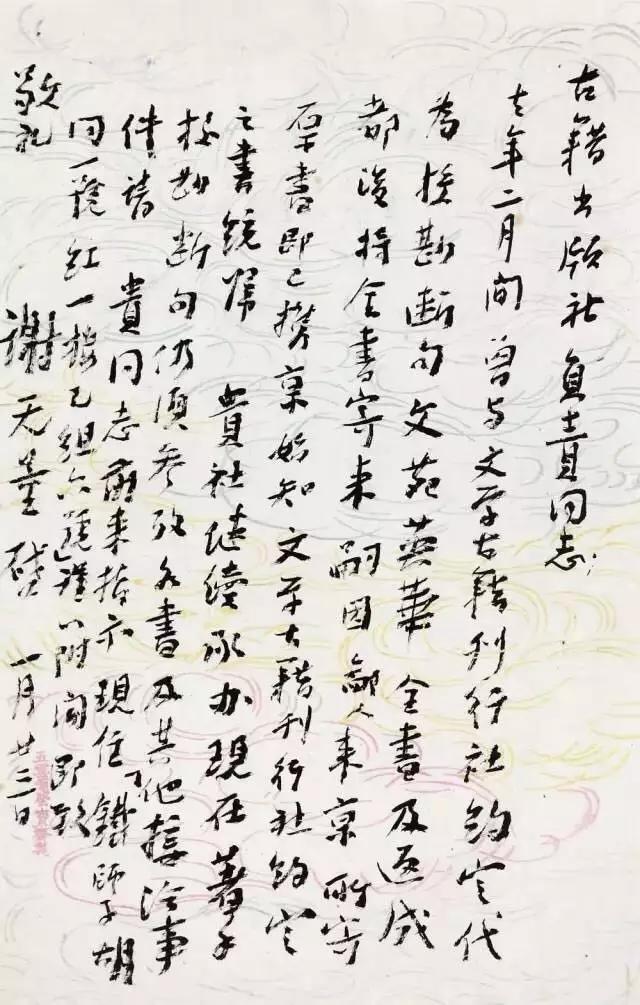 古籍出版社負責同志：
去年二月間曾与文学古籍刊行社約定代
為校勘断句文苑英華全書及返成
都後将全書寄来嗣因鄙人来京所寄
原書即已携京始知文学古籍刊行社約定
之書統归貴社继续承办現在著手
校勘断句仍須参攷各書及其他接洽事
件請貴同志前来指示現住鐵师子胡
同一號红一楼乙组六號謹以附闻即致
敬礼
謝无量啓 一月廿三日